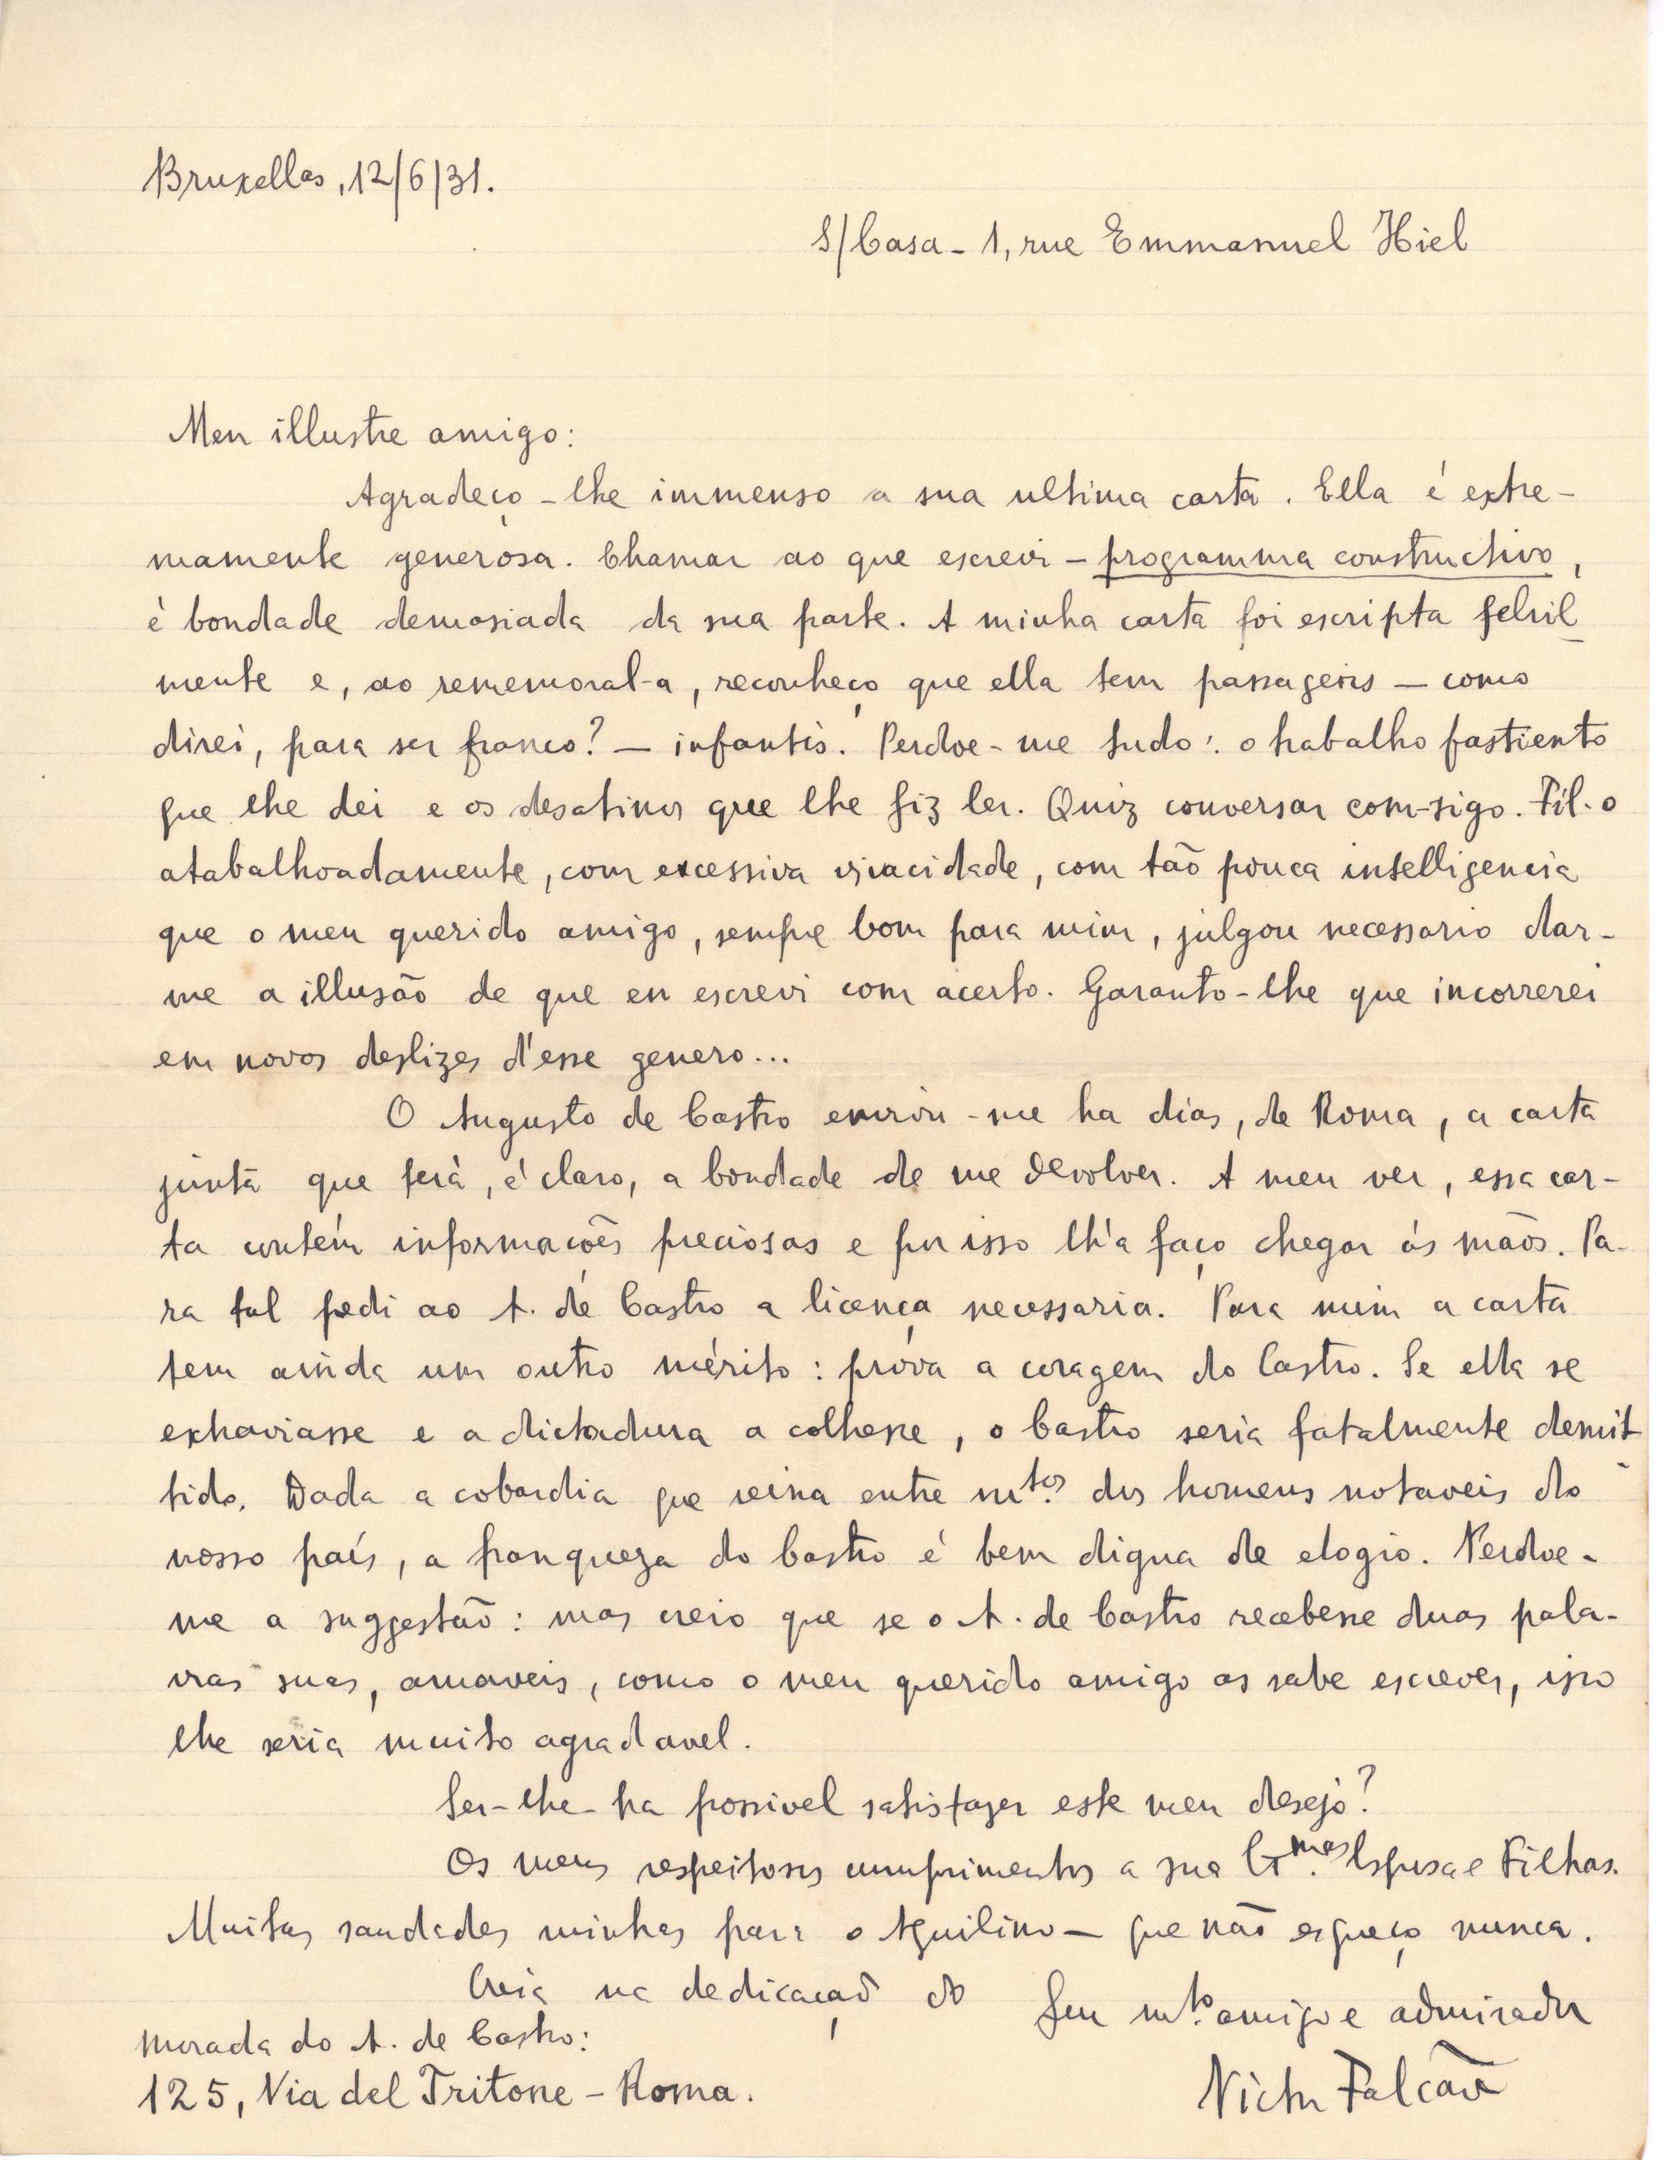 Bruxellas, 12/6/31.
S/Casa - 1, rue Emmanuel Hiel
Meu illustre amigo:
Agradeço-lhe immenso a sua ultima carta. Ella é extre-
mamente generosa. Chamar ao que escrevi - programma constructivo,
é bondade demasiada da sua parte. A minha carta foi escripta febril
mente e, ao rememoral-a, reconheço que ella tem passagens — como
direi, para ser franco? — infantis. Perdoe-me tudo: o trabalho fastiento
que lhe dei e os desatinos que lhe fiz ler. Quiz conversar com-sigo. Fil-o
atabalhoadamente, com excessiva vivacidade, com tão pouca intelligencia
que o meu querido amigo, sempre bom para mim, julgou necessario dar-
me a illusão de que eu escrevi com acerto. Garanto-lhe que incorrerei
em novos deslizes d'esse genero...
O Augusto de Castro enviou-me ha dias, de Roma, a carta
junta que terá, é claro, a bondade de me devolver. A meu ver, essa car-
ta contém informações preciosas e por isso lh'a faço chegar ás mãos. Pa-
ra tal pedi ao A. de Castro a licença necessaria. Para mim a carta
tem ainda um outro mérito: próva a coragem do Castro. Se ella se
extraviasse e a dictadura a colhesse, o Castro seria fatalmente demit
tido. Dada a cobardia que reina entre mtos. dos homens notaveis do
nosso país, a franqueza do Castro é bem digna de elogio. Perdoe-
me a suggestão: mas creio que se o A. de Castro recebesse duas pala-
vras suas, amaveis, como o meu querido amigo as sabe escrever, isso
lhe seria muito agradavel.
Ser-lhe-ha possivel satisfazer este meu desejo?
Os meus respeitosos cumprimentos a sua Esposa e Filhas.
Muitas saudades minhas para o Aquilino — que não esqueço nunca.
Creia na dedicação do
Seu mto. amigo e admirador
Morada do A. de Castro:
125, Via del Tritone - Roma.
Victor Falcão